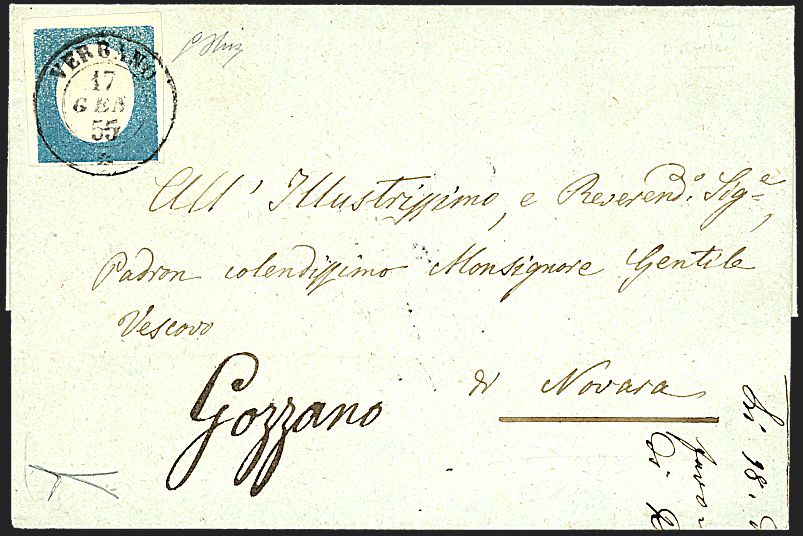 VERBANO
17
GEN
55
All' Illustrissimo, e Reverend.º Sig.e,
Padron colendissimo Monsignore Gentile
Vescovo
di Novara
Gozzano
Li 18.